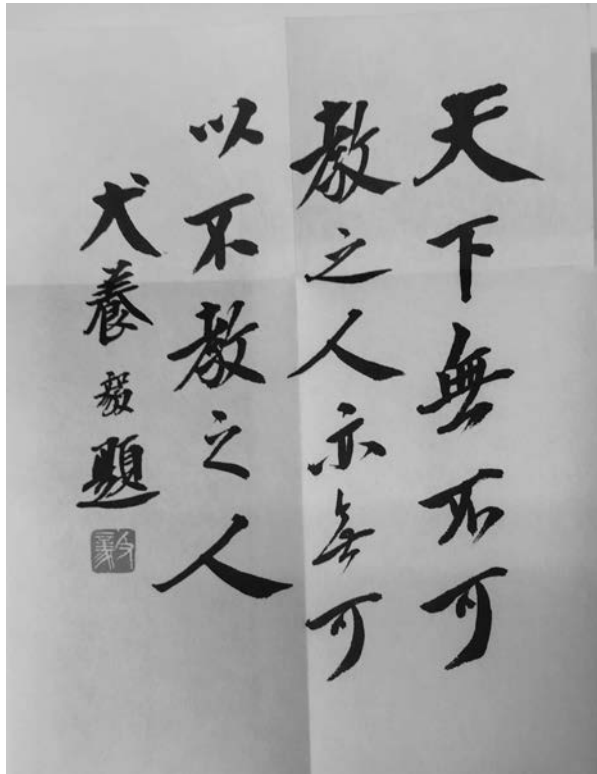 天下無不可
教之人亦無可
以不教之人
犬養毅題